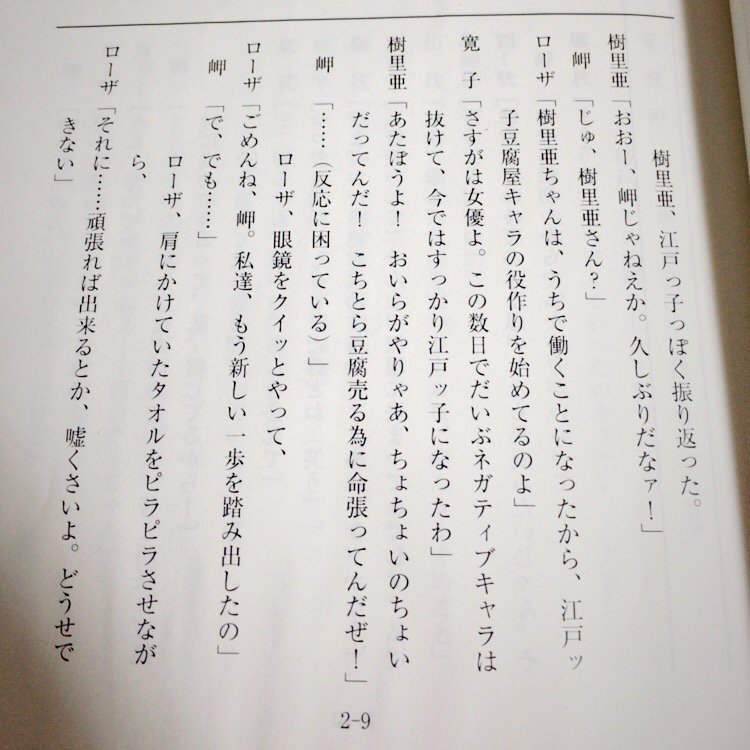 樹里亜、江戸っ子っぽく振り返った。
樹里亜「おおー、岬じゃねえか。久しぶりだなァ！」
岬「じゅ、樹里亜さん？」
ローザ「樹里亜ちゃんは、うちで働くことになったから、江戸ッ
子豆腐屋キャラの役作りを始めてるのよ」
寛子「さすがは女優よ。この数日でだいぶネガティブキャラは
抜けて、今ではすっかり江戸ッ子になったわ」
樹里亜「あたぼうよ！　おいらがやりゃあ、ちょちょいのちょい
だってんだ！　こちとら豆腐売る為に命張ってんだぜ！」
岬「……（反応に困っている）」
ローザ、眼鏡をクイッとやって、
ローザ「ごめんね、岬。私達、もう新しい一歩を踏み出したの」
岬「で、でも……」
ローザ、肩にかけていたタオルをピラピラさせなが
ら、
ローザ「それに……頑張れば出来るとか、嘘くさいよ。どうせで
きない」
2-9